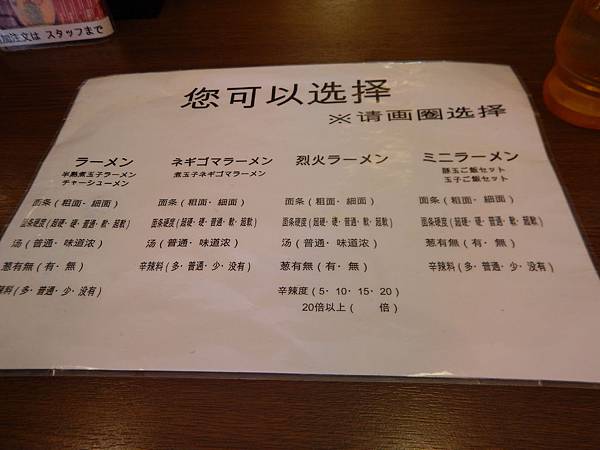 加注文は スタッフまで
您可以选择
※请画圈选择
ラーメン
半熟煮玉子ラーメン
チャーシューメン
面条(粗面・細面)
面条硬度(超硬・硬・普通・軟・超軟)
汤(普通・味道浓)
葱有無(有・無)
辣料(多・普通・少・没有)
ネギゴマラーメン
煮玉子ネギゴマラーメン
面条(粗面・細面)
面条硬度(超硬・硬・普通・軟・超軟)
汤(普通・味道浓)
辛辣料(多・普通・少・没有)
烈火ラーメン
面条(粗面・細面)
面条硬度(超硬・硬・普通・軟・超軟)
汤(普通・味道浓)
葱有無(有・無)
辛辣度(5・10・15・20)
20倍以上( 倍)
ミニラーメン
豚玉ご飯セット
玉子ご飯セット
面条(粗面・細面)
面条硬度(超硬・硬・普通・軟・超軟)
葱有無(有・無)
辛辣料(多・普通・少・没有)